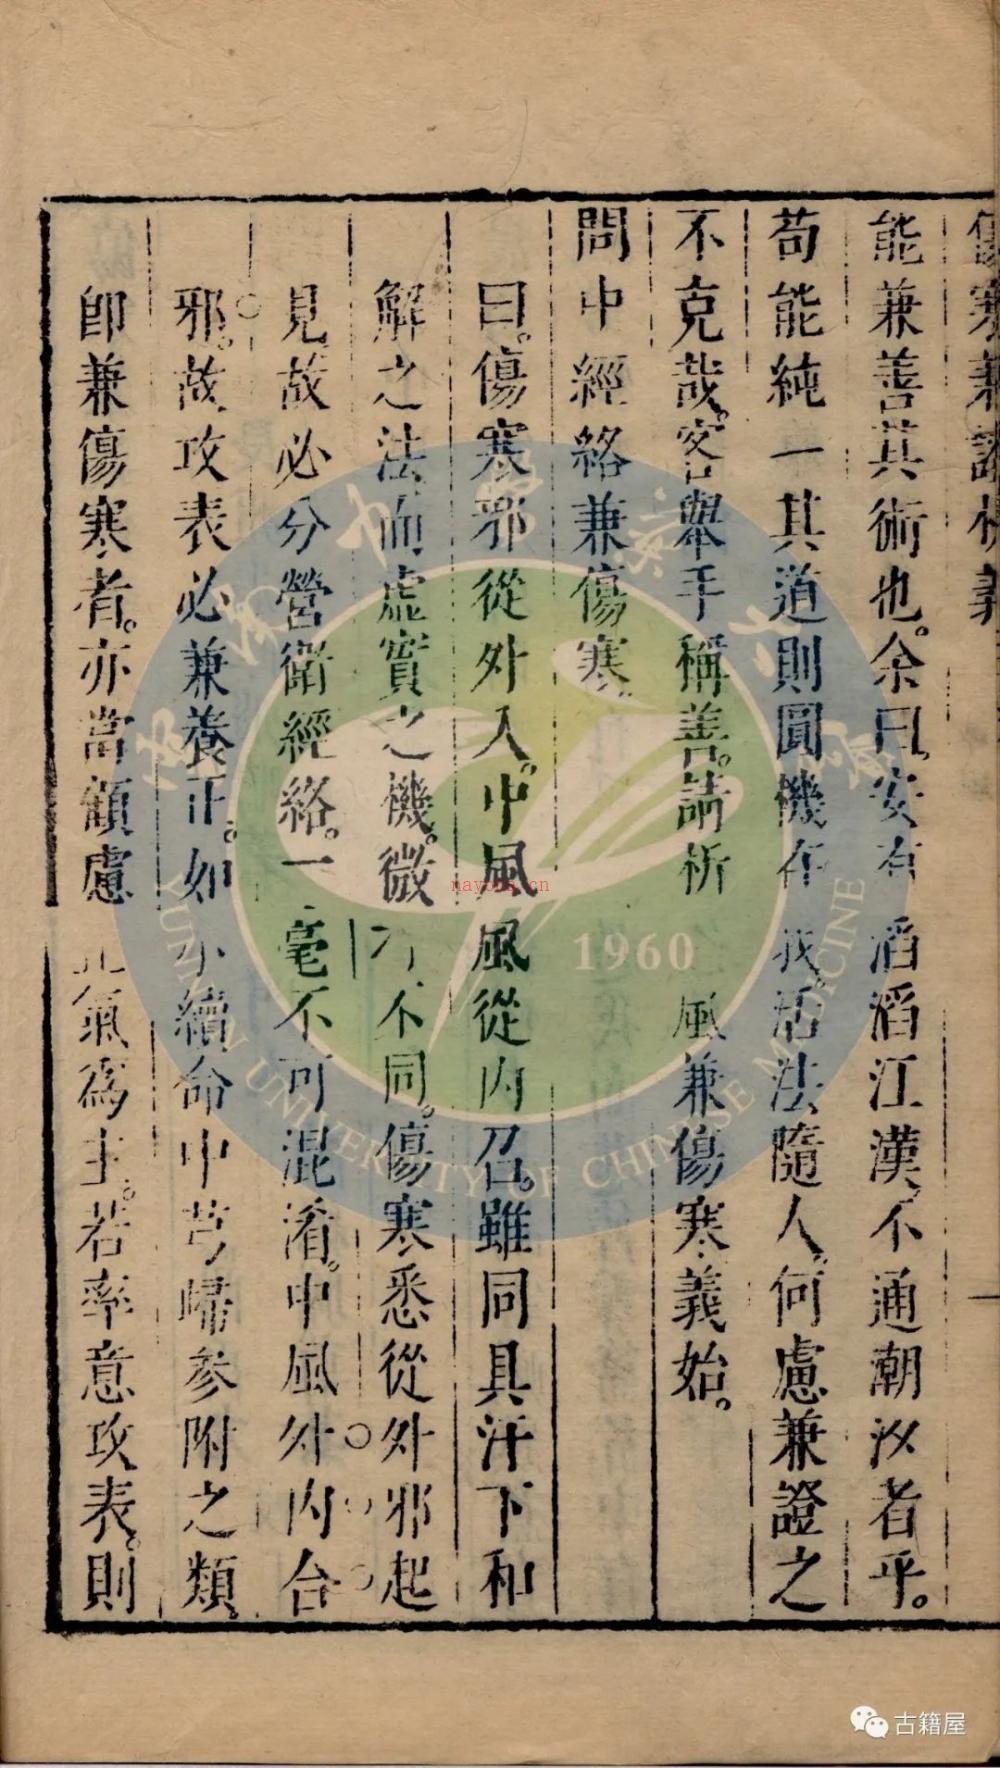 傷寒兼證析義
一
能兼善其術也。余曰。安有滔滔江漢。不通潮汐者乎。
苟能純一其道。則圓機在我。活法隨人。何慮兼證之
不克哉。客舉手稱善。請析中風兼傷寒義始。
問中經絡兼傷寒
曰。傷寒邪從外入。中風風從內召。雖同具汗下和
解之法。而虛實之機。微有不同。傷寒悉從外邪起
見。故必分營衛經絡。一毫不可混淆。中風外內合
邪。故攻表必兼養正。如小續命中芎歸參附之類。
即兼傷寒者。亦當顧慮元氣為主。若率意攻表。則
1960
YUNNAN UNIVERSITY OF CHINESE MEDICINE
nayona.cn
古籍屋